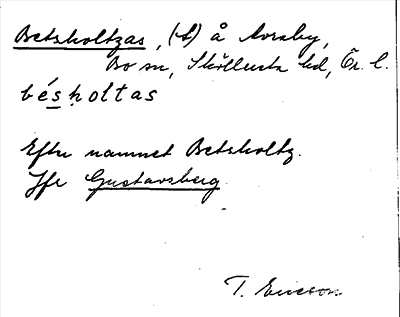 Betsholtzas, (t) å Avraby,
Bo sn, Sköllersta hd, Ör. l.
béṣholtas
Efter namnet Betsholtz.
Jfr Gustavsberg
T. Ericson